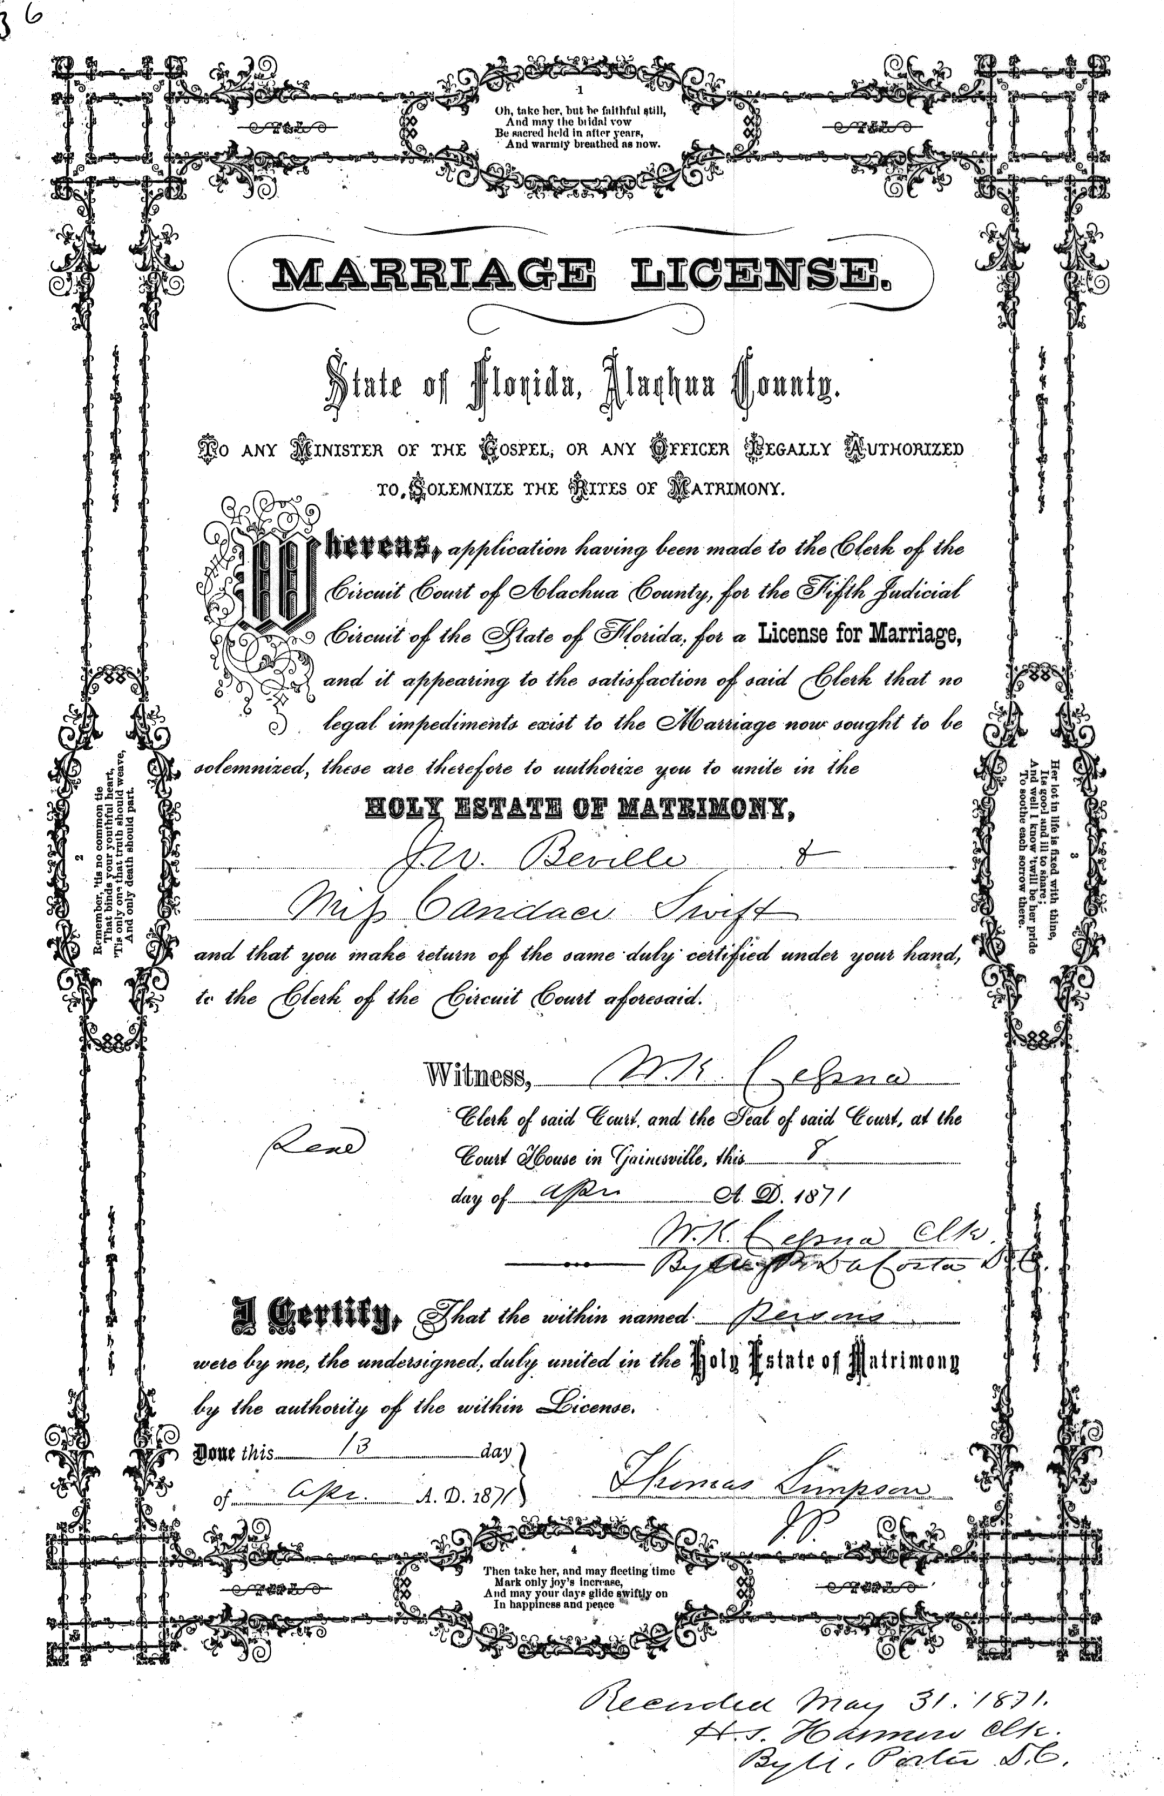 36
1
Oh, take her, but be faithful still,
And may the bridal vow
Be sacred held in after years,
And warmly breathed as now.
MARRIAGE LICENSE.
State of Florida, Alachua County.
TO ANY MINISTER OF THE GOSPEL, OR ANY OFFICER LEGALLY AUTHORIZED
TO SOLEMNIZE THE RITES OF MATRIMONY.
Whereas, application having been made to the Clerk of the
Circuit Court of Alachua County, for the Fifth Judicial
Circuit of the State of Florida, for a License for Marriage,
and it appearing to the satisfaction of said Clerk that no
legal impediments exist to the Marriage now sought to be
solemnized, these are therefore to authorize you to unite in the
HOLY ESTATE OF MATRIMONY,
J.W. Beville &
Miss Candace Swift
and that you make return of the same duly certified under your hand,
to the Clerk of the Circuit Court aforesaid.
2
Remember, 'tis no common tie
That binds your youthful heart,
'Tis only one that truth should weave,
And only death should part.
3
Her lot in life is fixed with thine,
Its good and ill to share;
And well I know 'twill be her pride
To soothe each sorrow there.
Witness, W.K. Cessna
Clerk of said Court, and the Seal of said Court, at the
Court House in Gainesville, this 8
day of Apr. A. D. 1871
W.K. Cessna Clk.
By DaCosta D.C.
I Certify, That the within named persons
were by me, the undersigned, duly united in the Holy Estate of Matrimony
by the authority of the within License.
Done this 13 day
of Apr. A. D. 1871
Thomas Simpson
J.P.
4
Then take her, and may fleeting time
Mark only joy's increase,
And may your days glide swiftly on
In happiness and peace
Recorded May 31. 1871.
H.S. Harmon Clk.
By Porter D.C.